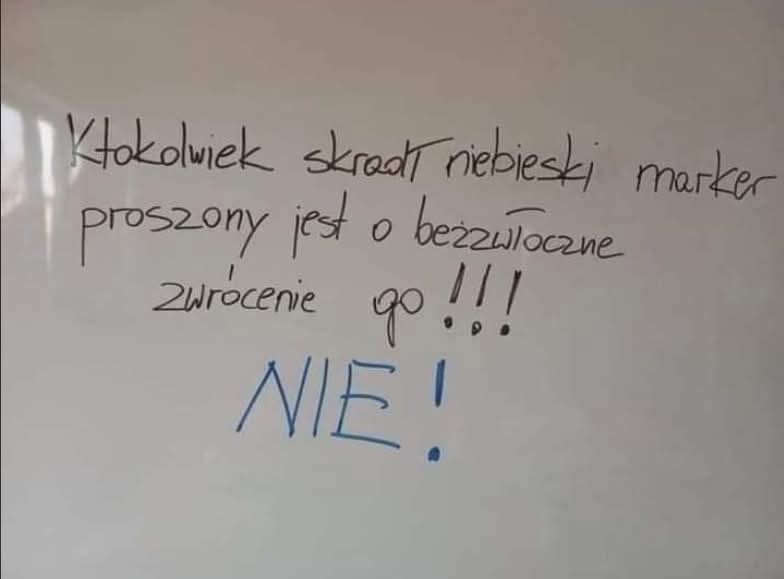 Ktokolwiek skradł niebieski marker
proszony jest o beżzwłoczne
zwrócenie go!!!
NIE!